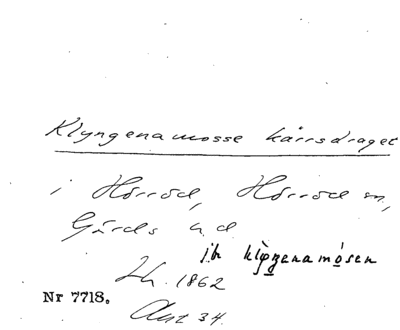 Klyngenamosse kärrsdraget
i Hörröd, Hörröd sn,
Gärds hd
ih klyngenamosen
Lh. 1862
Nr 7718.
Akt 34.